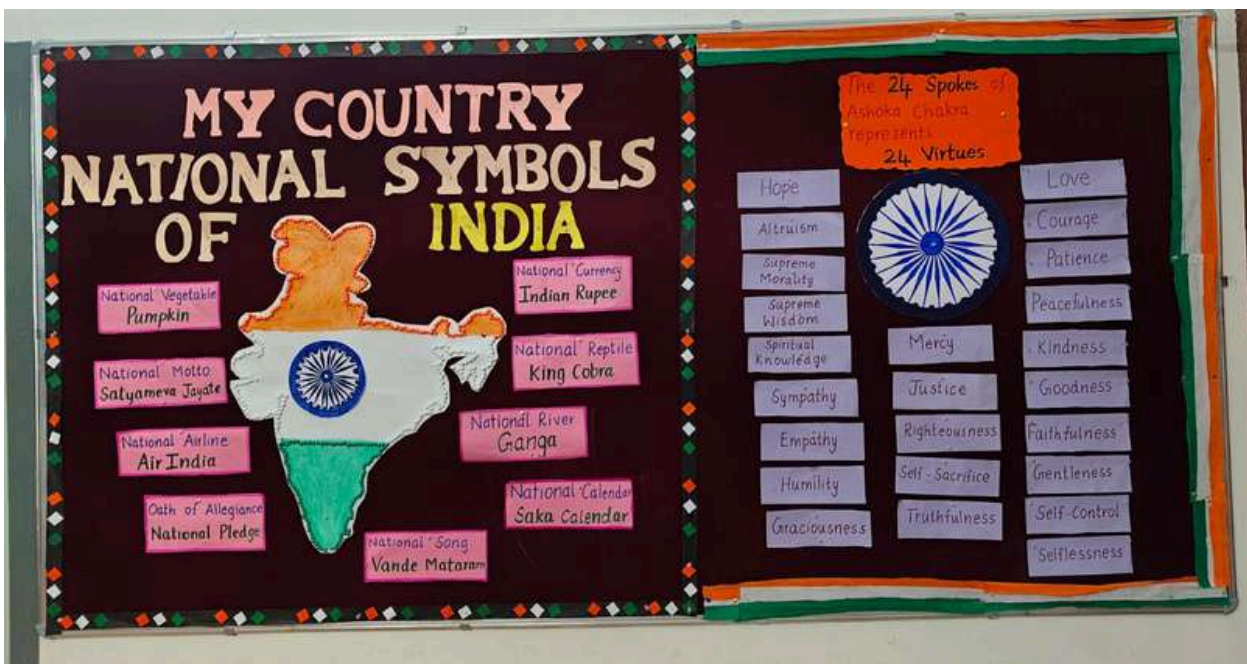 MY COUNTRY
NATIONAL SYMBOLS
OF INDIA
National Vegetable
Pumpkin
National Motto
Satyameva Jayate
National Airline
Air India
Oath of Allegiance
National Pledge
National Song
Vande Mataram
National Currency
Indian Rupee
National Reptile
King Cobra
National River
Ganga
National Calendar
Saka Calendar
The 24 Spokes of
Ashoka Chakra
represents
24 Virtues
Hope
Altruism
Supreme
Morality
Supreme
Wisdom
Spiritual
Knowledge
Sympathy
Empathy
Humility
Graciousness
Mercy
Justice
Righteousness
Self-Sacrifice
Truthfulness
Love
Courage
Patience
Peacefulness
Kindness
Goodness
Faithfulness
Gentleness
Self-Control
Selflessness